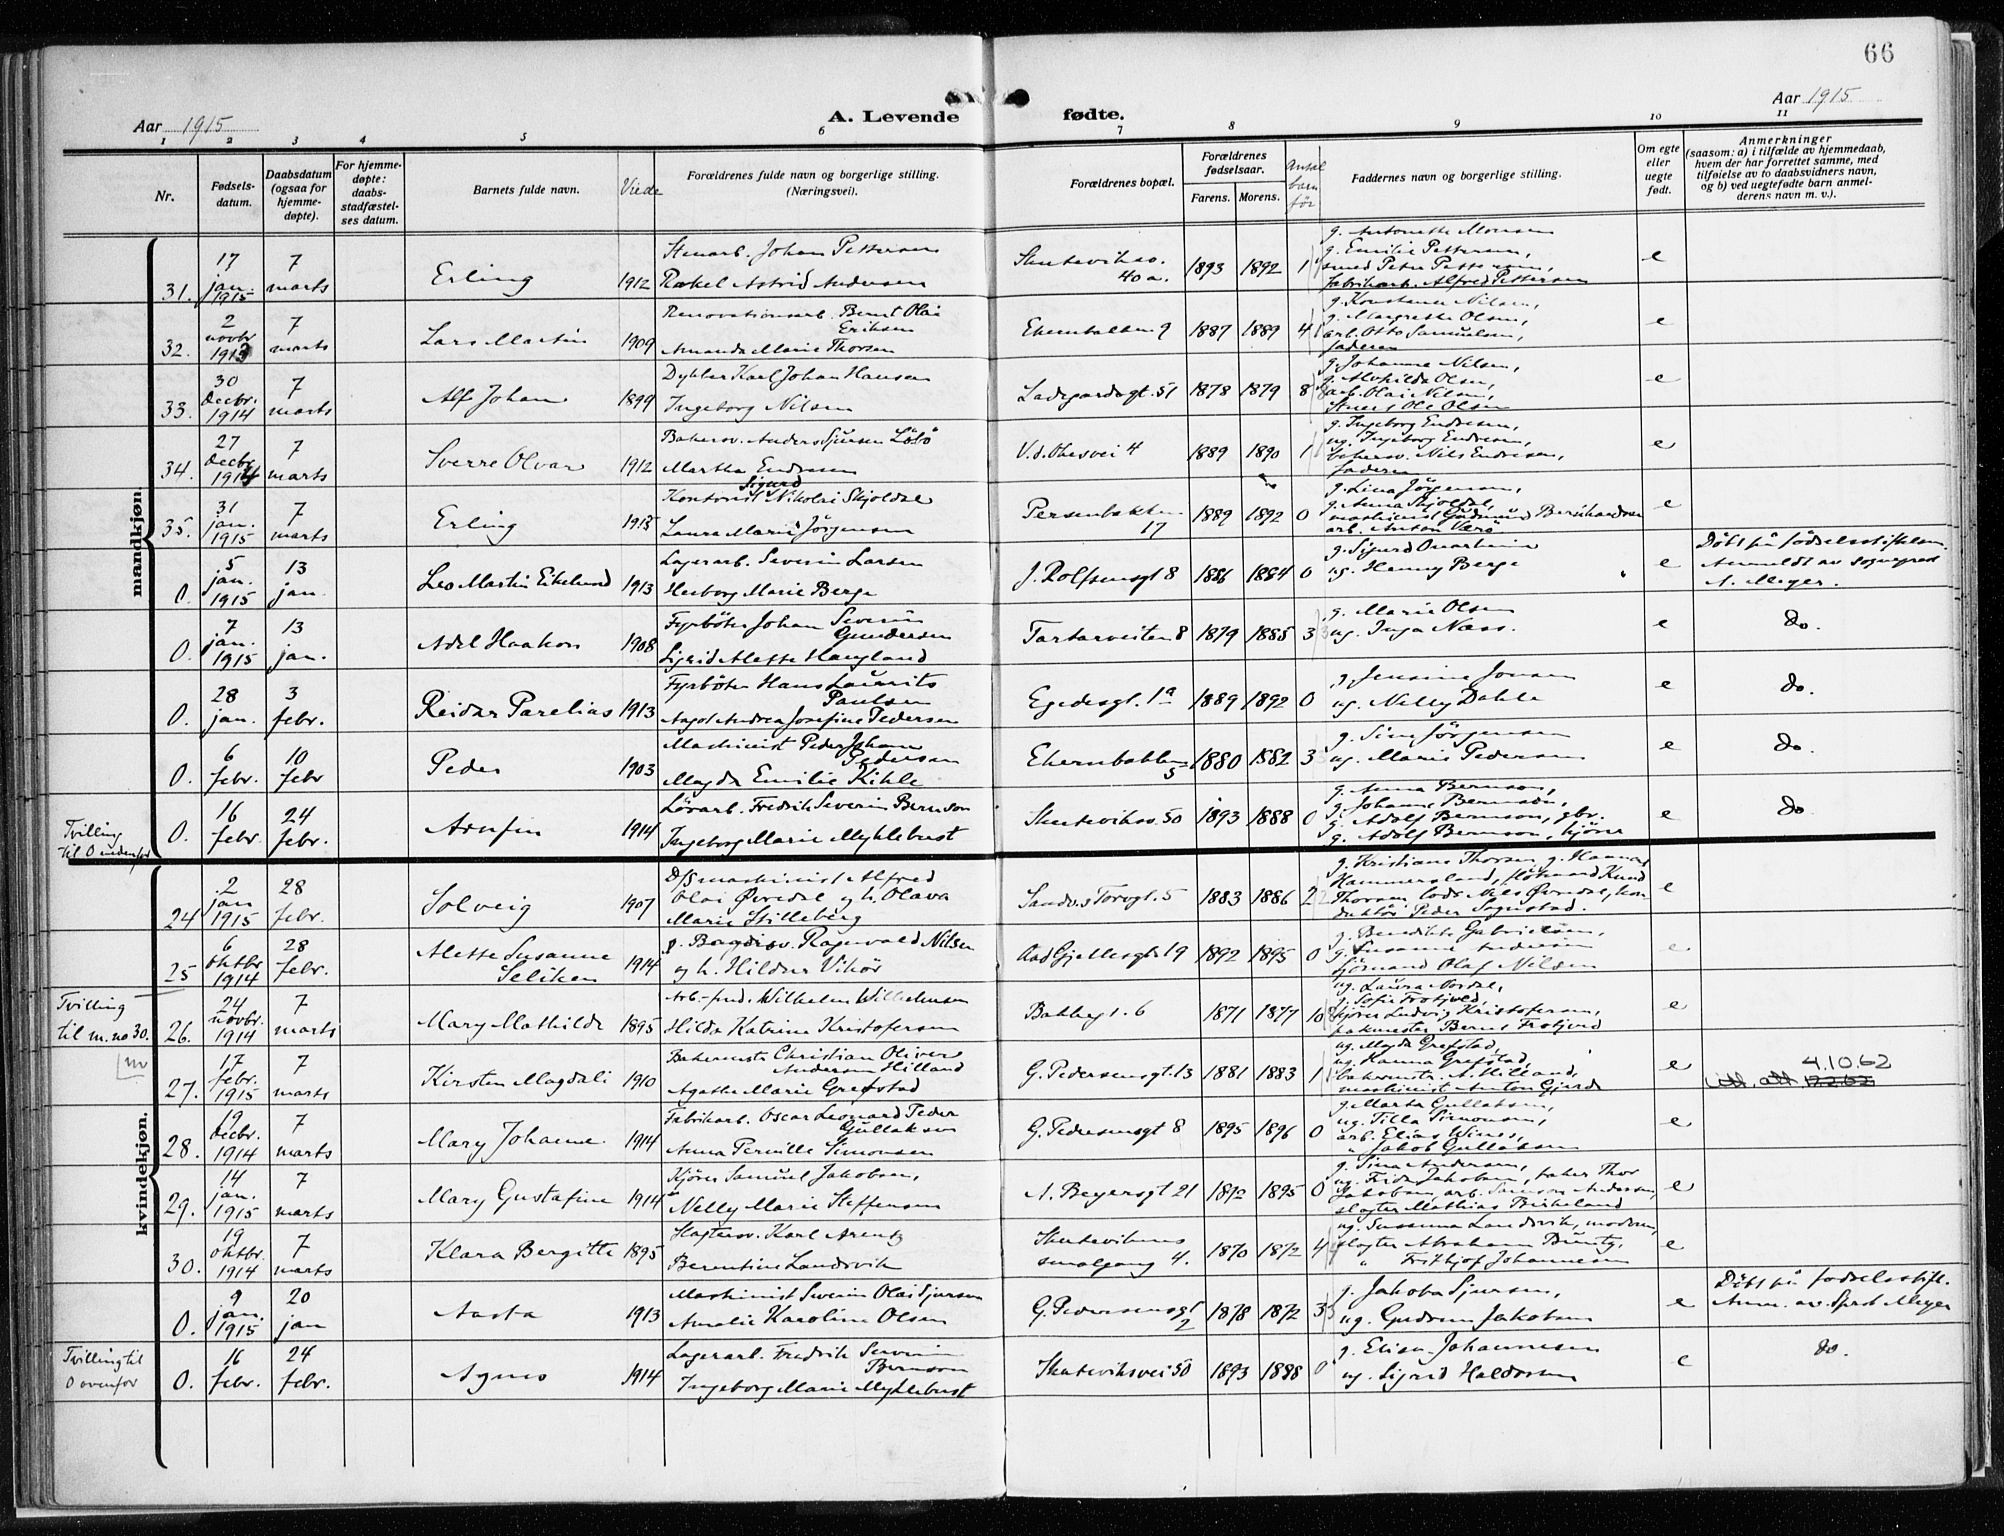 66
Aar 1915
A. Levende
fødte.
Aar 1915
1 2 3 4 5 6 7 8 9 10 11
Nr.
Fødsels-
datum.
Daabsdatum
(ogsaa for
hjemme-
døpte).
For hjemme-
døpte:
daabs-
stadfæstel-
ses datum.
Barnets fulde navn.
Viede
Forældrenes fulde navn og borgerlige stilling.
(Næringsvei).
Forældrenes bopæl.
Forældrenes
fødselsaar.
Farens. Morens.
Antal
barn
før
Faddernes navn og borgerlige stilling.
Om egte
eller
uegte
født.
Anmerkninger
(saasom: a) i tilfælde av hjemmedaab,
hvem der har forrettet samme, med
tilføielse av to daabsvidners navn,
og b) ved uegtefødte barn anmel-
derens navn m. v.).
mandkjøn.
31. 17 jan. 1915 7 marts Erling 1912
Stenarb. Johan Pettersen
Rakel Astrid Andersen
Skuteviksv. 40 a. 1893 1892 1
g. Antonette Monsen
g. Emilie Pettersen,
smed Peter Pettersen,
fabrikarb. Alfred Pettersen
e
32. 2 novbr. 1913 7 marts Lars Martin 1909
Renovationsarb. Bernt Olai
Eriksen
Amanda Marie Thorsen
Ekernbakken 9 1887 1889 4
g. Konstanse Nilsen,
g. Margrethe Olsen,
arb. Otto Samuelsen,
faderen
e
33. 30 decbr. 1914 7 marts Alf Johan 1899
Dykker Karl Johan Hansen
Ingeborg Nilsen
Ladegaardsgt. 51 1878 1879 8
g. Johanne Nilsen,
g. Alvhilda Olsen,
arb. Olai Nilsen,
Stuert Ole Olsen
e
34. 27 decbr. 1914 7 marts Sverre Olvar 1912
Bakersv. Anders Sjursen Løbø
Martha Endresen
V. d. Ohesvei 4 1889 1890 1
g. Ingeborg Endresen,
ug. Ingeborg Endresen,
bakersv. Nils Endresen,
faderen
e
35. 31 jan. 1915 7 marts Erling 1913
Sigurd
Kontorist Nikolai Skjoldal
Laura Marie Jörgensen
Persenbakken
17 1889 1892 0
g. Lina Jörgensen,
g. Anna Skjoldal,
maskinist Gudmund Bernhardsen
arb. Anton Værø
e
0. 5 jan. 1915 13 jan. Leo Martin Eikelund 1913
Lagerarb. Severin Larsen
Herborg Marie Berge
J. Rolfsensgt 8 1886 1884 0
g. Sigurd Onarheim
ug. Henny Berge
e
Döbt på födselsstiftelsen.
Anmeldt av sogneprest
A. Meyer.
0. 7 jan. 1915 13 jan. Adel Haakon 1908
Fyrböter Johan Severin
Gundersen
Sigrid Alette Haugland
Tartarveiten 8 1879 1885 3
g. Marie Olsen
ug. Inga Næss.
e
do.
0. 28 jan. 3 febr. Reidar Parelius 1913
Fyrböter Hans Laurits
Paulsen
Aagot Andrea Josefine Pedersen
Egedesgt. 1a 1889 1892 0
g. Jensine Jonsen
ug. Nelly Dahle
e
do.
0. 6 febr. 10 febr Peder 1903
Maskinist Peder Johan
Pedersen
Magda Emilie Kihle
Ekernbakken
5 1880 1882 3
g. Sina Jörgensen
ug. Marie Pedersen
e
do.
Tvilling
til 0 nedenfor
0. 16 febr. 24 febr. Arnfin 1914
Lörarb. Fredrik Severin Bernson
Ingeborg Marie Myklebust
Skuteviksv. 50 1893 1888 0
g. Anna Bernson,
g. Johanne Bernsön,
g. Adolf Bernson, gbr.
g. Adolf Bernson, kjörer
e
do
kvindekjøn.
24 2 jan 1915 28 febr. Solveig 1907
D/S maskinist Alfred
Olai Øvredal og h. Olava
Marie Stilleberg
Sandv. Torvgt. 5 1883 1886 2
g. Kristiane Thorsen, g. Hanna
Hammersland, sjömand Knud
Thorsen, lods Nils Øvredal, kon-
duktör Peder Sognstad.
e
25 6 oktbr 1914 28 febr. Alette Susanne
Seliken 1914
g. Bagersv. Ragnvald Nilsen
og h. Hildur Vikör
Aad Gjellesgt 19 1892 1895 0
g. Benedikte Gabrielsen,
g. Susanne Andersen
sjömand Olaf Nilsen
e
Tvilling
til m. no 30.
26. 24 novbr. 1914 7 marts Mary Mathilde 1895
Arb.-fmd. Wilhelm Wilhelmsen
Hilda Katrine Kristofersen
Bakkegt. 6 1871 1877 10
ug. Laura Nordal,
g. Sofie Frotjold,
kjörer Ludvig Kristofersen,
pakmester Bernt Frotjold
e
27. 17 febr. 1915 7 marts Kirsten Magdali 1910
Bakermester Christian Oliver
Andersen Hilland
Agathe Marie Grefstad
G. Pedersensgt. 13 1881 1883 1
ug. Magda Grefstad,
ug. Hanna Grefstad,
bakermstr. A. Hilland,
maskinist Anton Gjerde
e
4.10.62
utt. att 12262
28. 19 decbr. 1914 7 marts Mary Johanne 1914
Fabrikarb. Oscar Leonard Peder
Gullaksen
Anna Pernille Simonsen
G. Pedersensgt 8 1895 1896 0
g. Marta Gullaksen,
ug. Tilla Simonsen,
arb. Elias Wines,
" Jakob Gullaksen
e
29. 14 jan. 1915 7 marts Mary Gustafine 1914
Kjörer Samuel Jakobsen,
Nelly Marie Steffensen
A. Beyersgt 21 1892 1895 0
g. Sina Andersen,
ug. Frida Jakobsen, baker Thor
Jakobsen, arb. Samson Andersen,
slagter Mathias Birkeland
e
30. 19 oktbr. 1914 7 marts Klara Bergitte 1895
Slagtersv. Karl Arentz
Berentine Landsvik
Skutevikens
smalgang 4. 1870 1872 4
ug. Susanna Landsvik, moderen,
slagter Abraham Buntz,
" Frithjof Johannesen
e
0. 9 jan. 1915 20 jan Aasta 1913
Maskinist Severin Olai Sjursen
Amalie Karoline Olsen
G. Pedersensgt
2 1878 1872 3
g. Jakoba Sjursen,
ug. Gudrun Jakobsen
e
Döbt på fødselsstift.
Anm. av Sprst Meyer
Tvilling til
0 ovenfor
0. 16 febr. 24 febr. Agnes 1914
Lagerarb. Fredrik Severin
Bernson
Ingeborg Marie Myklebust
Skuteviksvei 50 1893 1888 0
g. Elisa Johannesen
ug. Sigrid Haldorsen
e
do.